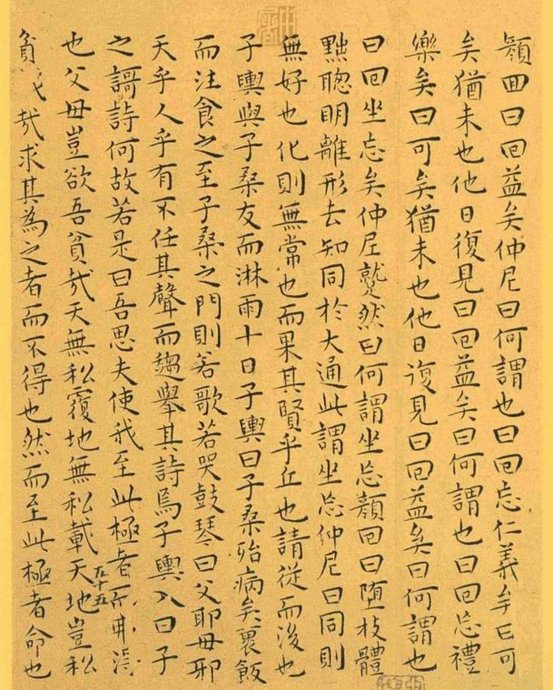 顏回曰回益矣仲尼曰何謂也曰回忘仁義矣曰可
矣猶未也他日復見曰回益矣曰何謂也曰回忘禮
樂矣曰可矣猶未也他日復見曰回益矣曰何謂也
曰回坐忘矣仲尼蹵然曰何謂坐忘顏回曰堕枝體
黜聰明離形去知同於大通此謂坐忘仲尼曰同則
無好也化則無常也而果其賢乎丘也請從而後也
子輿與子桑友而淋雨十日子輿曰子桑殆病矣裹飯
而往食之至子桑之門則若歌若哭鼓琴曰父耶母邪
天乎人乎有不任其聲而趨舉其詩焉子輿入曰子
之謌詩何故若是曰吾思夫使我至此極者而弗得
五十五
也父母豈欲吾貧哉天無私覆地無私載天地豈私
貧我哉求其為之者而不得也然而至此極者命也